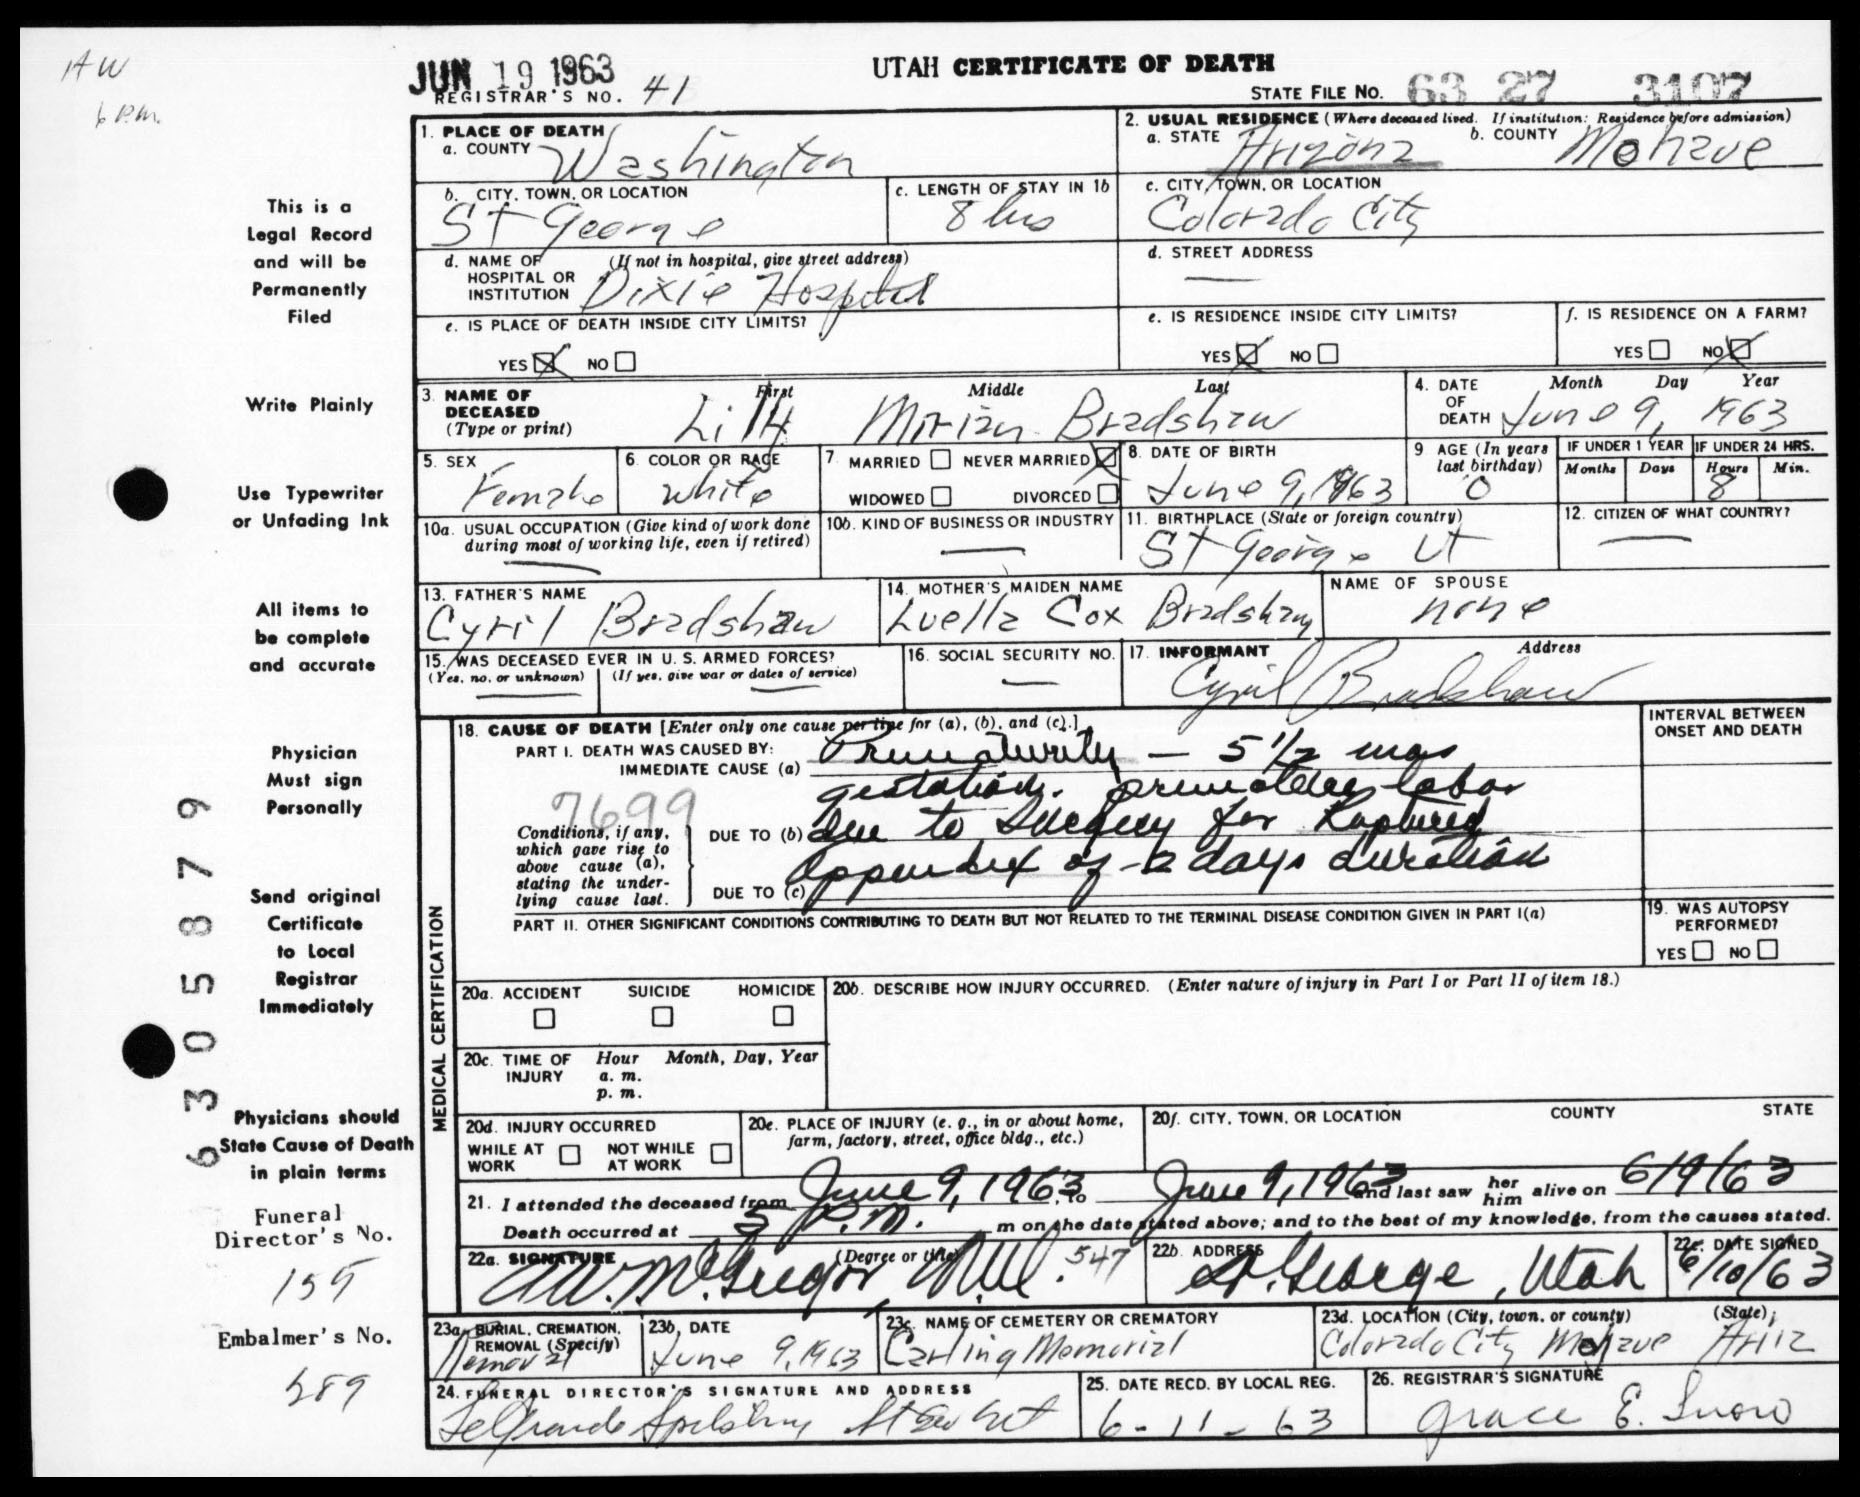 AW
6 P.M.
JUN 19 1963
UTAH CERTIFICATE OF DEATH
REGISTRAR'S NO. 41
STATE FILE NO. 63 27 3107
1. PLACE OF DEATH
a. COUNTY Washington
2. USUAL RESIDENCE (Where deceased lived. If institution: Residence before admission)
a. STATE Arizona b. COUNTY Mohave
b. CITY, TOWN, OR LOCATION
St George
c. LENGTH OF STAY IN 1b
8 hrs
c. CITY, TOWN, OR LOCATION
Colorado City
d. NAME OF HOSPITAL OR INSTITUTION (If not in hospital, give street address)
Dixie Hospital
d. STREET ADDRESS
—
e. IS PLACE OF DEATH INSIDE CITY LIMITS?
YES NO
e. IS RESIDENCE INSIDE CITY LIMITS?
YES NO
f. IS RESIDENCE ON A FARM?
YES NO
3. NAME OF DECEASED (Type or print)
First Middle Last
Lilly Miriam Bradshaw
4. DATE OF DEATH Month Day Year
June 9, 1963
5. SEX
Female
6. COLOR OR RACE
white
7. MARRIED NEVER MARRIED
WIDOWED DIVORCED
8. DATE OF BIRTH
June 9, 1963
9 AGE (In years last birthday)
0
IF UNDER 1 YEAR IF UNDER 24 HRS.
Months Days Hours Min.
8
10a. USUAL OCCUPATION (Give kind of work done during most of working life, even if retired)
—
10b. KIND OF BUSINESS OR INDUSTRY
—
11. BIRTHPLACE (State or foreign country)
St George Ut
12. CITIZEN OF WHAT COUNTRY?
—
13. FATHER'S NAME
Cyril Bradshaw
14. MOTHER'S MAIDEN NAME
Luella Cox Bradshaw
NAME OF SPOUSE
none
15. WAS DECEASED EVER IN U. S. ARMED FORCES?
(Yes, no, or unknown) (If yes, give war or dates of service)
— —
16. SOCIAL SECURITY NO.
—
17. INFORMANT Address
Cyril Bradshaw
MEDICAL CERTIFICATION
18. CAUSE OF DEATH [Enter only one cause per line for (a), (b), and (c).]
INTERVAL BETWEEN ONSET AND DEATH
PART I. DEATH WAS CAUSED BY:
IMMEDIATE CAUSE (a) Prematurity — 5 1/2 mos
gestation. premature labor
7699
Conditions, if any, which gave rise to above cause (a), stating the underlying cause last.
DUE TO (b) due to Surgery for Ruptured
DUE TO (c) appendix of -2 days duration
PART II. OTHER SIGNIFICANT CONDITIONS CONTRIBUTING TO DEATH BUT NOT RELATED TO THE TERMINAL DISEASE CONDITION GIVEN IN PART I(a)
19. WAS AUTOPSY PERFORMED?
YES NO
20a. ACCIDENT SUICIDE HOMICIDE
20b. DESCRIBE HOW INJURY OCCURRED. (Enter nature of injury in Part I or Part II of item 18.)
20c. TIME OF INJURY Hour Month, Day, Year
a. m.
p. m.
20d. INJURY OCCURRED
WHILE AT WORK NOT WHILE AT WORK
20e. PLACE OF INJURY (e. g., in or about home, farm, factory, street, office bldg., etc.)
20f. CITY, TOWN, OR LOCATION COUNTY STATE
21. I attended the deceased from June 9, 1963, to June 9, 1963 and last saw her him alive on 6/9/63
Death occurred at 5 P.M. m on the date stated above; and to the best of my knowledge, from the causes stated.
22a. SIGNATURE (Degree or title)
AW. McGregor, M.D. 547
22b. ADDRESS
St. George, Utah
22c. DATE SIGNED
6/10/63
23a. BURIAL, CREMATION, REMOVAL (Specify)
Removal
23b. DATE
June 9, 1963
23c. NAME OF CEMETERY OR CREMATORY
Carling Memorial
23d. LOCATION (City, town, or county) (State)
Colorado City Mohave Ariz
24. FUNERAL DIRECTOR'S SIGNATURE AND ADDRESS
25. DATE RECD. BY LOCAL REG.
6-11-63
26. REGISTRAR'S SIGNATURE
Grace E. Snow
This is a
Legal Record
and will be
Permanently
Filed
Write Plainly
Use Typewriter
or Unfading Ink
All items to
be complete
and accurate
Physician
Must sign
Personally
Send original
Certificate
to Local
Registrar
Immediately
Physicians should
State Cause of Death
in plain terms
Funeral
Director's No.
Embalmer's No.
6305879